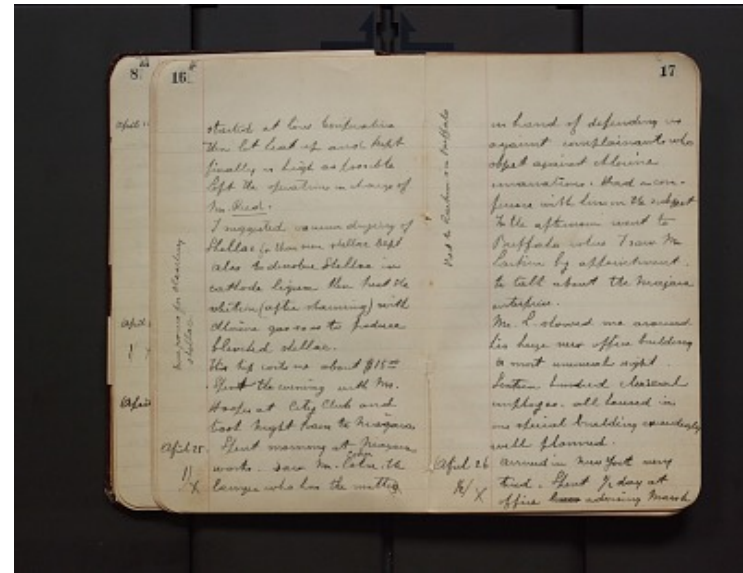 8
16
started at low temperature
then let heat up and kept
finally as high as possible
Left the operation in charge of
Mr. Reed.
I suggested vacuum drying of
Shellac
also to dissolve Shellac in
cathode liquor then treat the
solution (after straining) with
chlorine gas so as to produce
bleached shellac.
This trip costs me about $15 00
Spent the evening with Mr.
Hooper at City Club and
took night train to Niagara
April 25. Spent morning at Niagara
works. Saw Mr. the
lawyer who has the matter
1/ X
for bleaching
shellac.
April
April
April
17
in hand of defending us
against complainants who
object against chlorine
emanations. Had a con-
ference with him on the subject
In the afternoon went to
Buffalo where I saw Mr
Larkin by appointment.
to talk about the Niagara
enterprise.
Mr. L. showed me around
his huge new office building
a most unusual sight.
hundred clerical
employees. all housed in
one special building exceedingly
well planned.
April 26 arrived in New York very
tired. Spent ½ day at
office advising Marsh
½/ X
Visit to Larkin in Buffalo